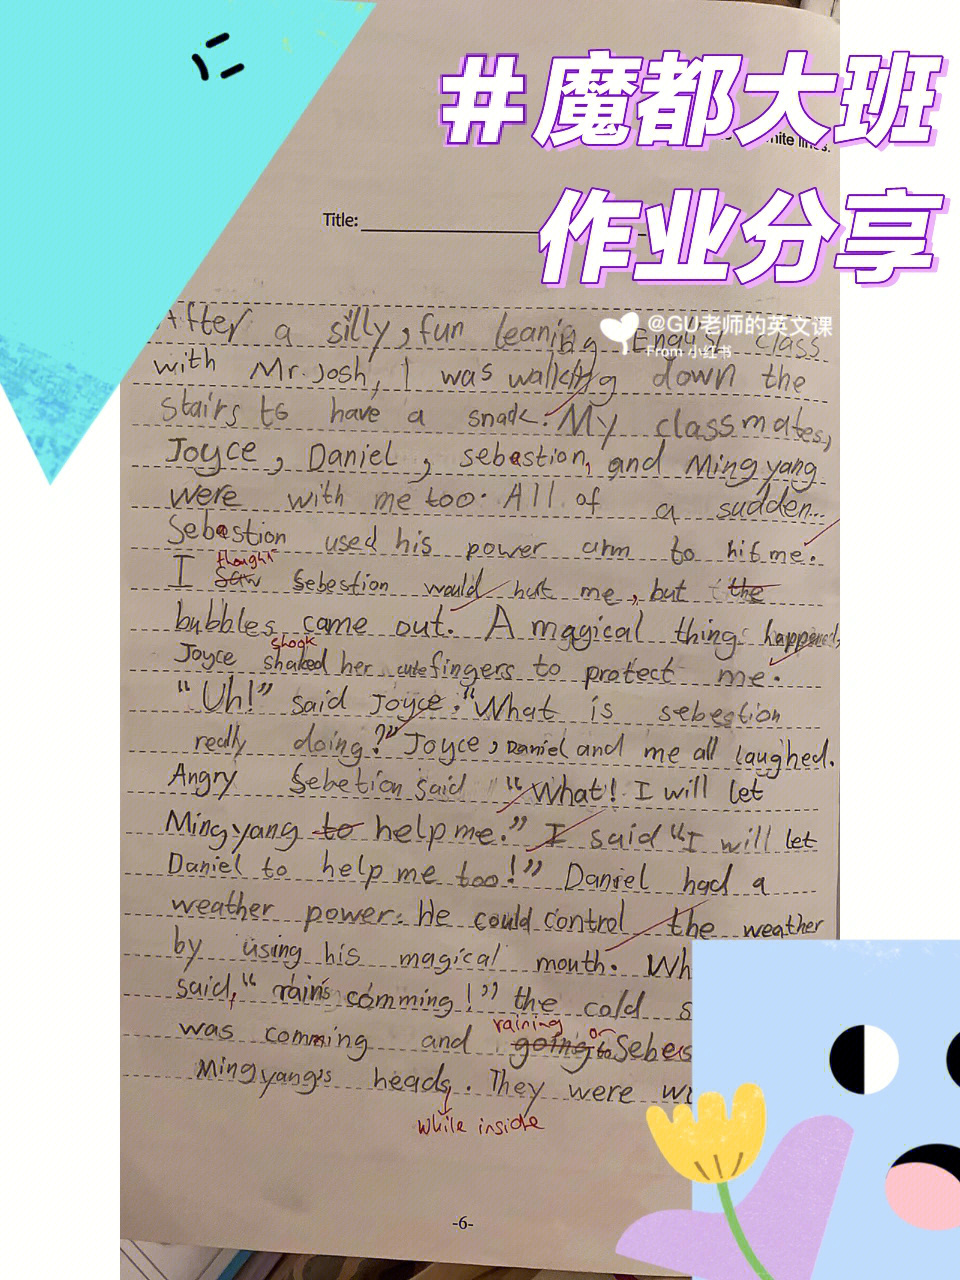 #魔都大班
作业分享
white lines.
Title:
@GU老师的英文课
From 小红书
After a silly, fun leaning English class
with Mr. Josh, I was walking down the
stairs to have a snack. My classmates,
Joyce, Daniel, sebastion, and Mingyang
were with me too. All of a sudden...
Sebastion used his power arm to hit me.
thought
I saw Sebestion would hurt me, but the
bubbles came out. A magical thing happened,
shook
Joyce shaked her cute fingers to protect me.
"Uh!" said Joyce. "What is sebestion
really doing?" Joyce, Daniel and me all laughed.
Angry Sebetion said "What! I will let
Mingyang to help me." I said "I will let
Daniel to help me too!" Daniel had a
weather power. He could control the weather
by using his magical mouth. Wh
said, "rain's comming!" the cold s
raining or
was comming and going to Sebes
Mingyang's heads. They were w
while inside
-6-